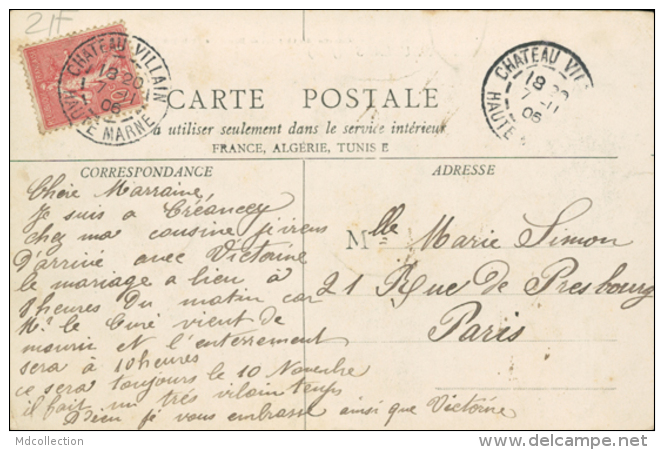 21F
CHATEAU VILLAIN
18 20
7
06
HAUTE MARNE
CHATEAU VIL
18 20
7 - 11
06
HAUTE
CARTE POSTALE
à utiliser seulement dans le service intérieur
FRANCE, ALGÉRIE, TUNIS E
CORRESPONDANCE
ADRESSE
Chère Marraine,
Je suis à Créancey
chez ma cousine
D'arrivé avec Victorine
le mariage a lieu à
8 heures Du matin car
Mr le Curé vient de
mourir et l'enterrement
sera à 10 heures
ce sera toujours le 10 Novembre
il fait un très vilain temps
Adieu je vous embrasse ainsi que Victorine
Mlle Marie Simon
21 Rue de Presbourg
Paris
Mdcollection
delcampe.net